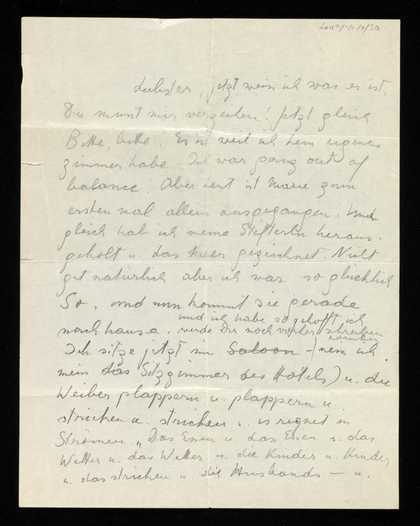 Liebster, jetzt weiss ich was es ist.
Du musst mir verzeihen! Jetzt gleich
Bitte, bitte. Es ist weil ich kein eigenes
zimmer habe. Ich war ganz out of
balance. Aber jetzt ist Marie zum
ersten mal allein ausgegangen. Und
gleich hab ich meine Stifterln heraus-
geholt u. das hier gezeichnet. Nicht
gut natürlich aber ich war so glücklich
So, und nun kommt sie gerade
nach hause, und ich habe so gehofft, ich
werde Dir noch vorher schreiben
können
Ich sitze jetzt im Saloon – (nein ich
mein das Sitzzimmer des Hotels) u. die
Weiber plappern u. plappern u.
stricken u. stricken u. es regnet in
Strömen „Das Essen u das Essen u. das
Wetter u. das Wetter u. die Kinder u. Kinder
u. das stricken u die Husbands – u.